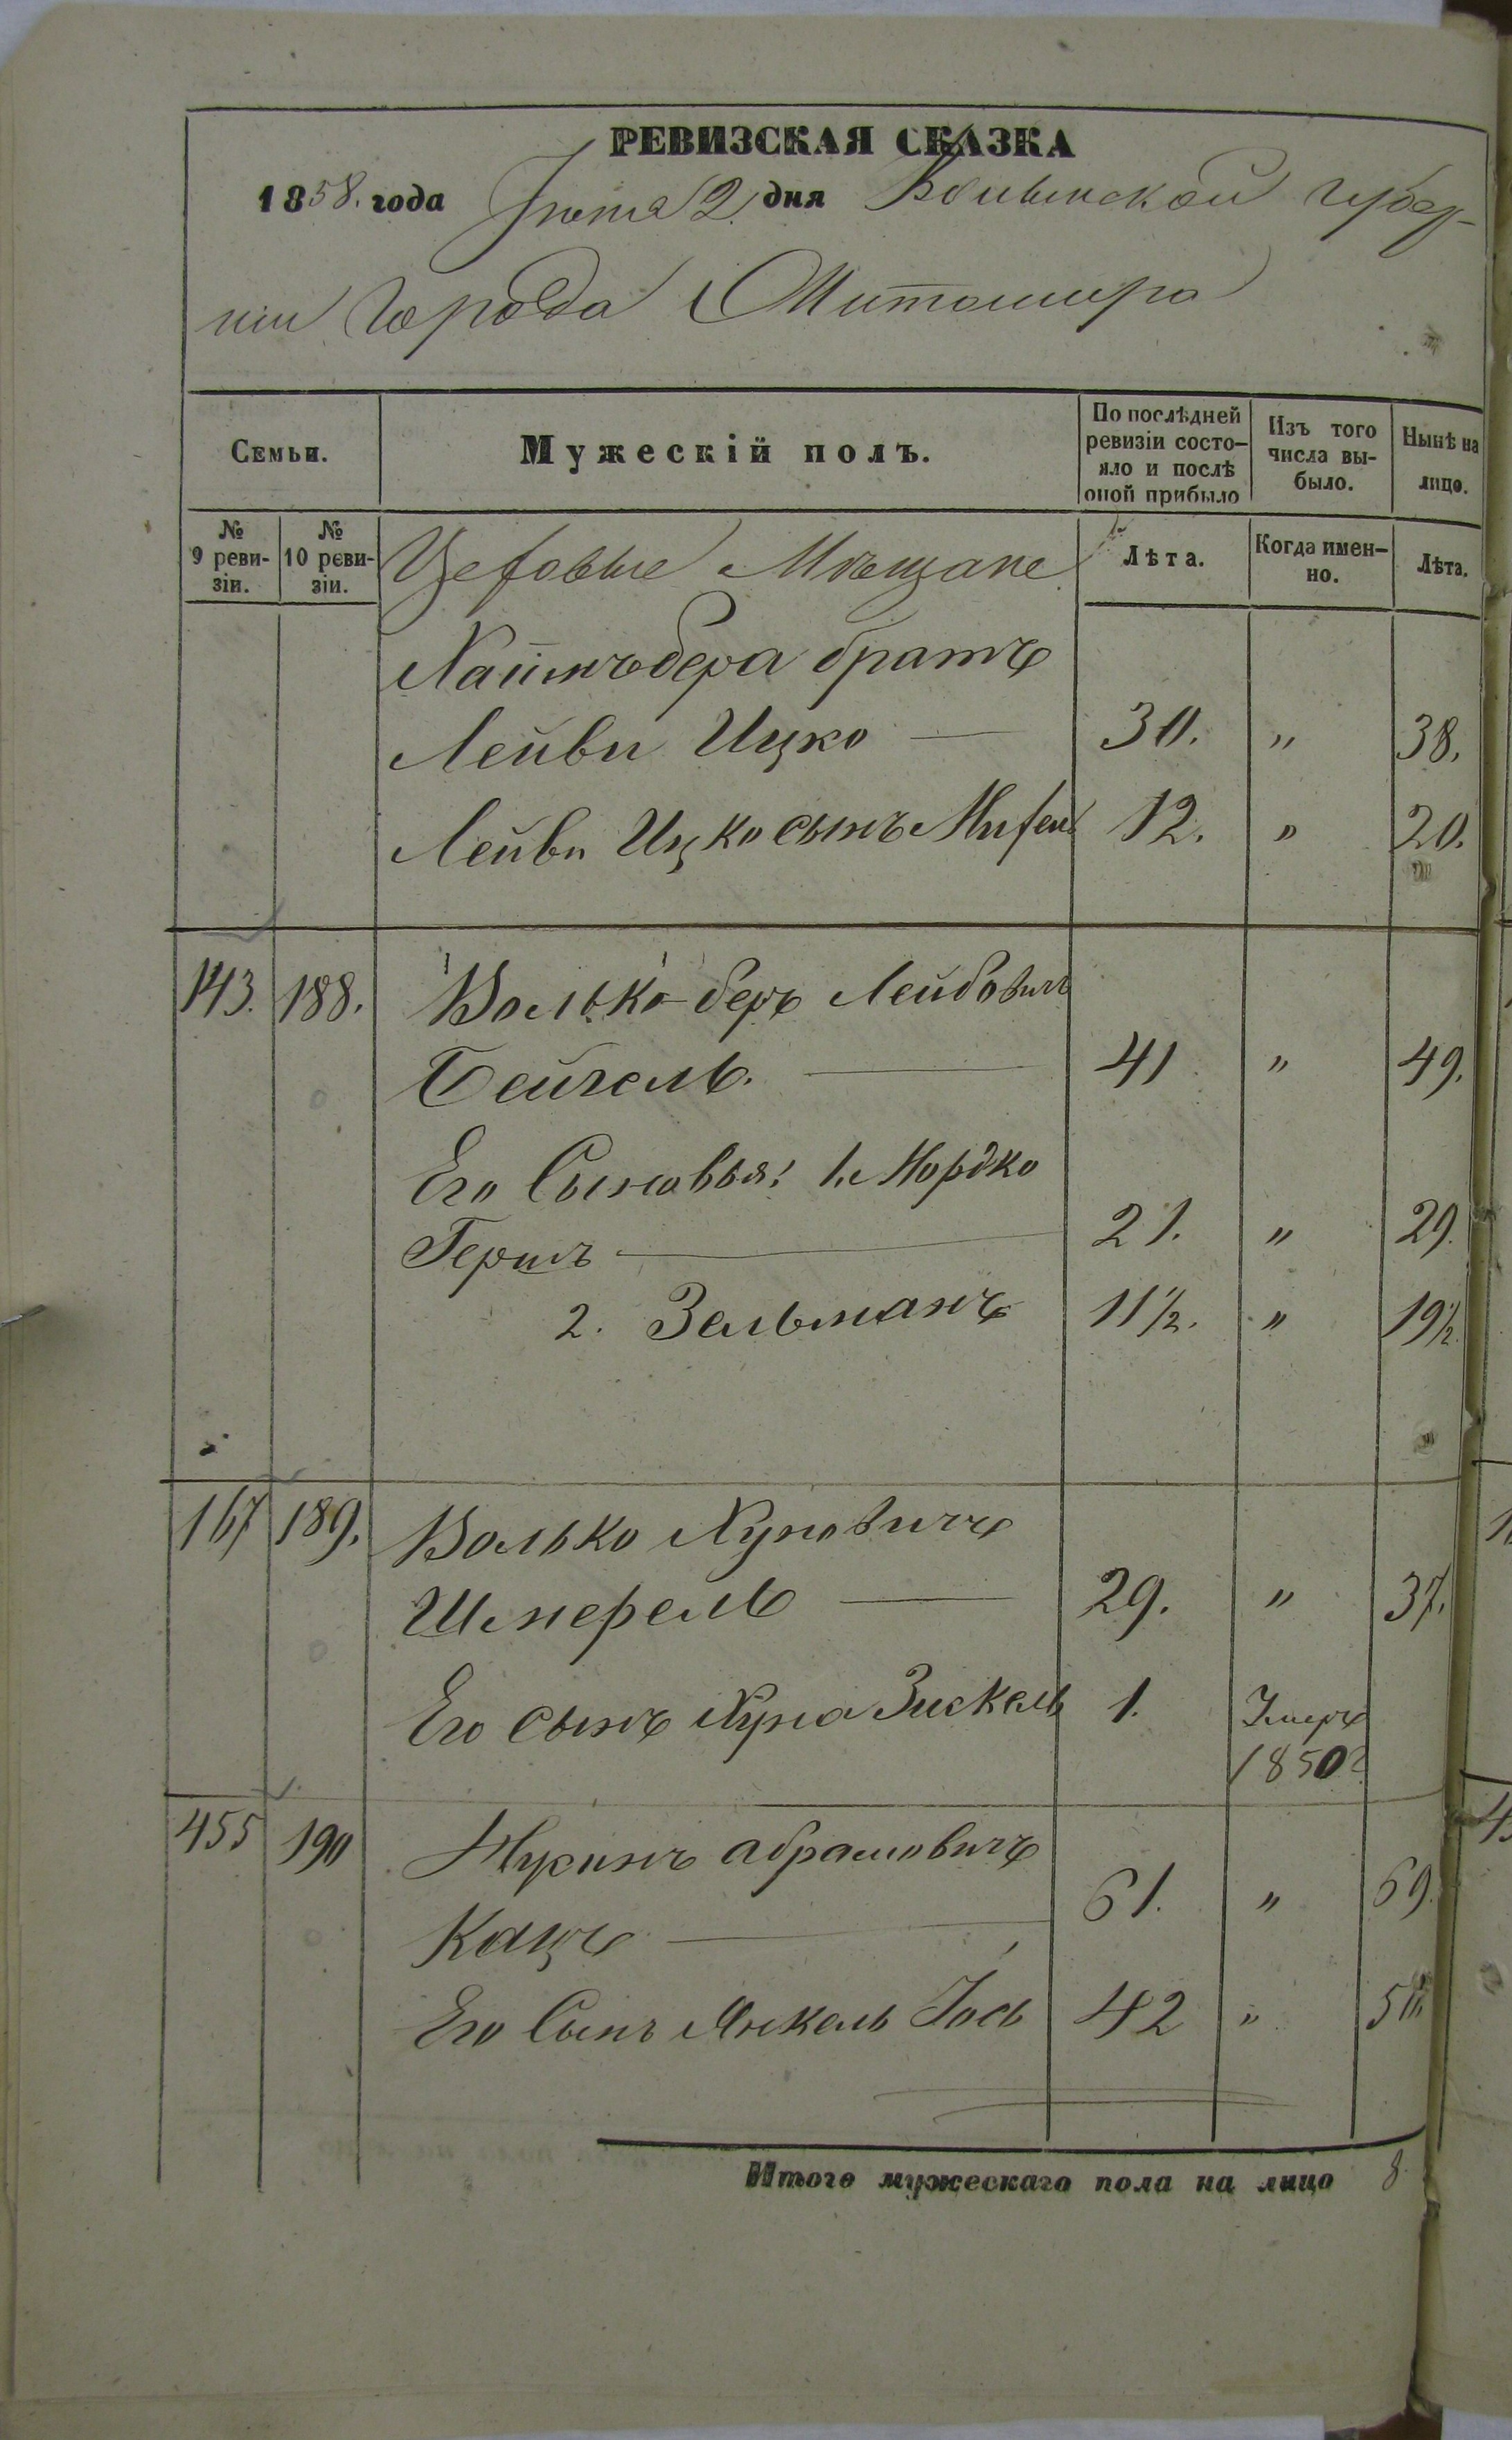 РЕВИЗСКАЯ СКАЗКА
1858. года Іюня 2 дня Волынской губер-
ніи Города Житомира
Семьи.
Мужескій полъ.
По послѣдней
ревизіи состо-
яло и послѣ
оной прибыло
Изъ того
числа вы-
было.
Нынѣ на
лицо.
№
9 реви-
зіи.
№
10 реви-
зіи.
Цеховые Мѣщане
Лѣта.
Когда имен-
но.
Лѣта.
Хаимъ бера братъ
Лейви Ицко — 30. " 38.
Лейви Ицко сынъ Михель 12. " 20.
143. 188. Волько-беръ Лейбовичъ
Бейгель. — 41 " 49.
Его Сыновья: 1. Мордко
Гершъ — 21. " 29.
2. Зельманъ 11½. " 19½.
167 189. Волько Хуновичъ
Шмерель — 29. " 37.
Его сынъ Хуна Зискель 1. Умеръ
1850г
455 190 Нухимъ абрамовичъ
Кацъ — 61. " 69.
Его Сынъ Янкель Іось 42 " 50.
Итого мужескаго пола на лицо 8